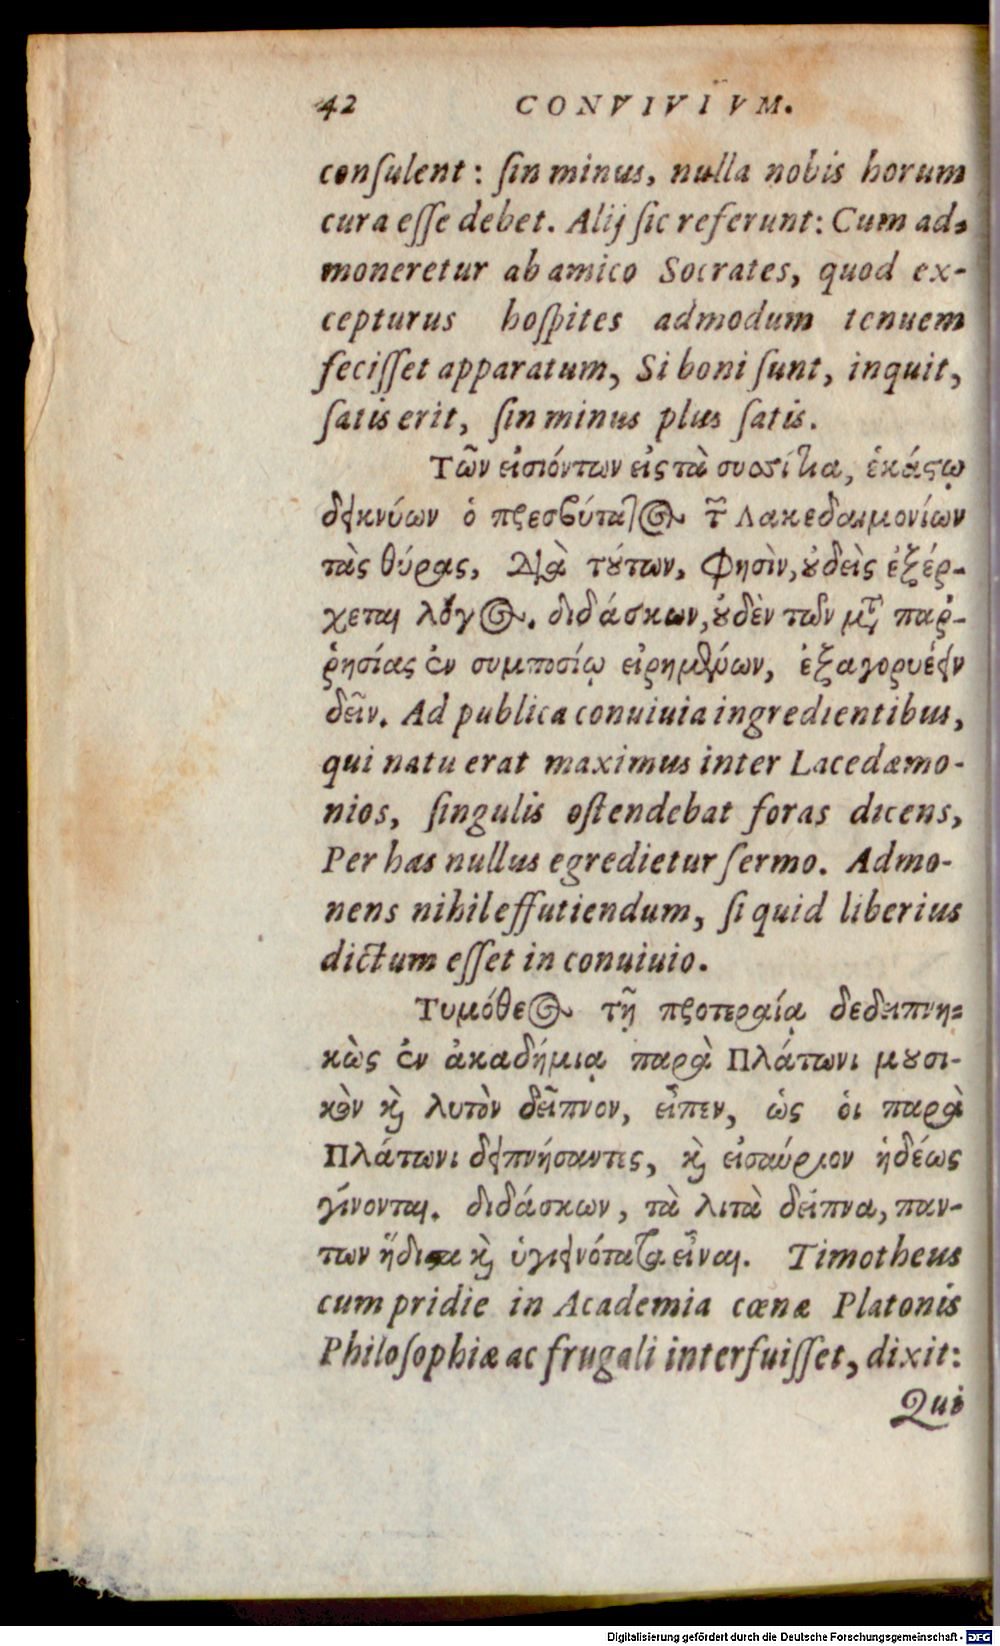 42 CONVIVIVM.
conſulent: ſin minus, nulla nobis horum
cura eſſe debet. Alij ſic referunt: Cum ad-
moneretur ab amico Socrates, quod ex-
cepturus hoſpites admodum tenuem
feciſſet apparatum, Si boni ſunt, inquit,
ſatis erit, ſin minus plus ſatis.
Τῶν εἰσιόντων εἰς τὰ συσσίτια, ἑκάστῳ
δεικνύων ὁ πρεσβύτατος τῶν Λακεδαιμονίων
τὰς θύρας, Διὰ τούτων, Φησὶν, οὐδεὶς ἐξέρ-
χεται λόγος. διδάσκων, οὐδὲν τῶν μετὰ παῤ-
ῥησίας ἐν συμποσίῳ εἰρημένων, ἐξαγορυέειν
δεῖν. Ad publica conuiuia ingredientibus,
qui natu erat maximus inter Lacedæmo-
nios, ſingulis oſtendebat foras dicens,
Per has nullus egredietur ſermo. Admo-
nens nihil effutiendum, ſi quid liberius
dictum eſſet in conuiuio.
Τυμόθεος τῇ προτεραίᾳ δεδειπνη-
κὼς ἐν ἀκαδήμιᾳ παρὰ Πλάτωνι μουσι-
κὸν καὶ λυτὸν δεῖπνον, εἶπεν, ὡς οἱ παρὰ
Πλάτωνι δειπνήσαντες, καὶ εἰσαύριον ἡδέως
γίνονται. διδάσκων, τὰ λιτὰ δείπνα, παν-
των ἥδιστα καὶ ὑγιεινότατα εἶναι. Timotheus
cum pridie in Academia cœnæ Platonis
Philoſophiæ ac frugali interfuiſſet, dixit:
Qui
Digitalisierung gefördert durch die Deutsche Forschungsgemeinschaft - DFG